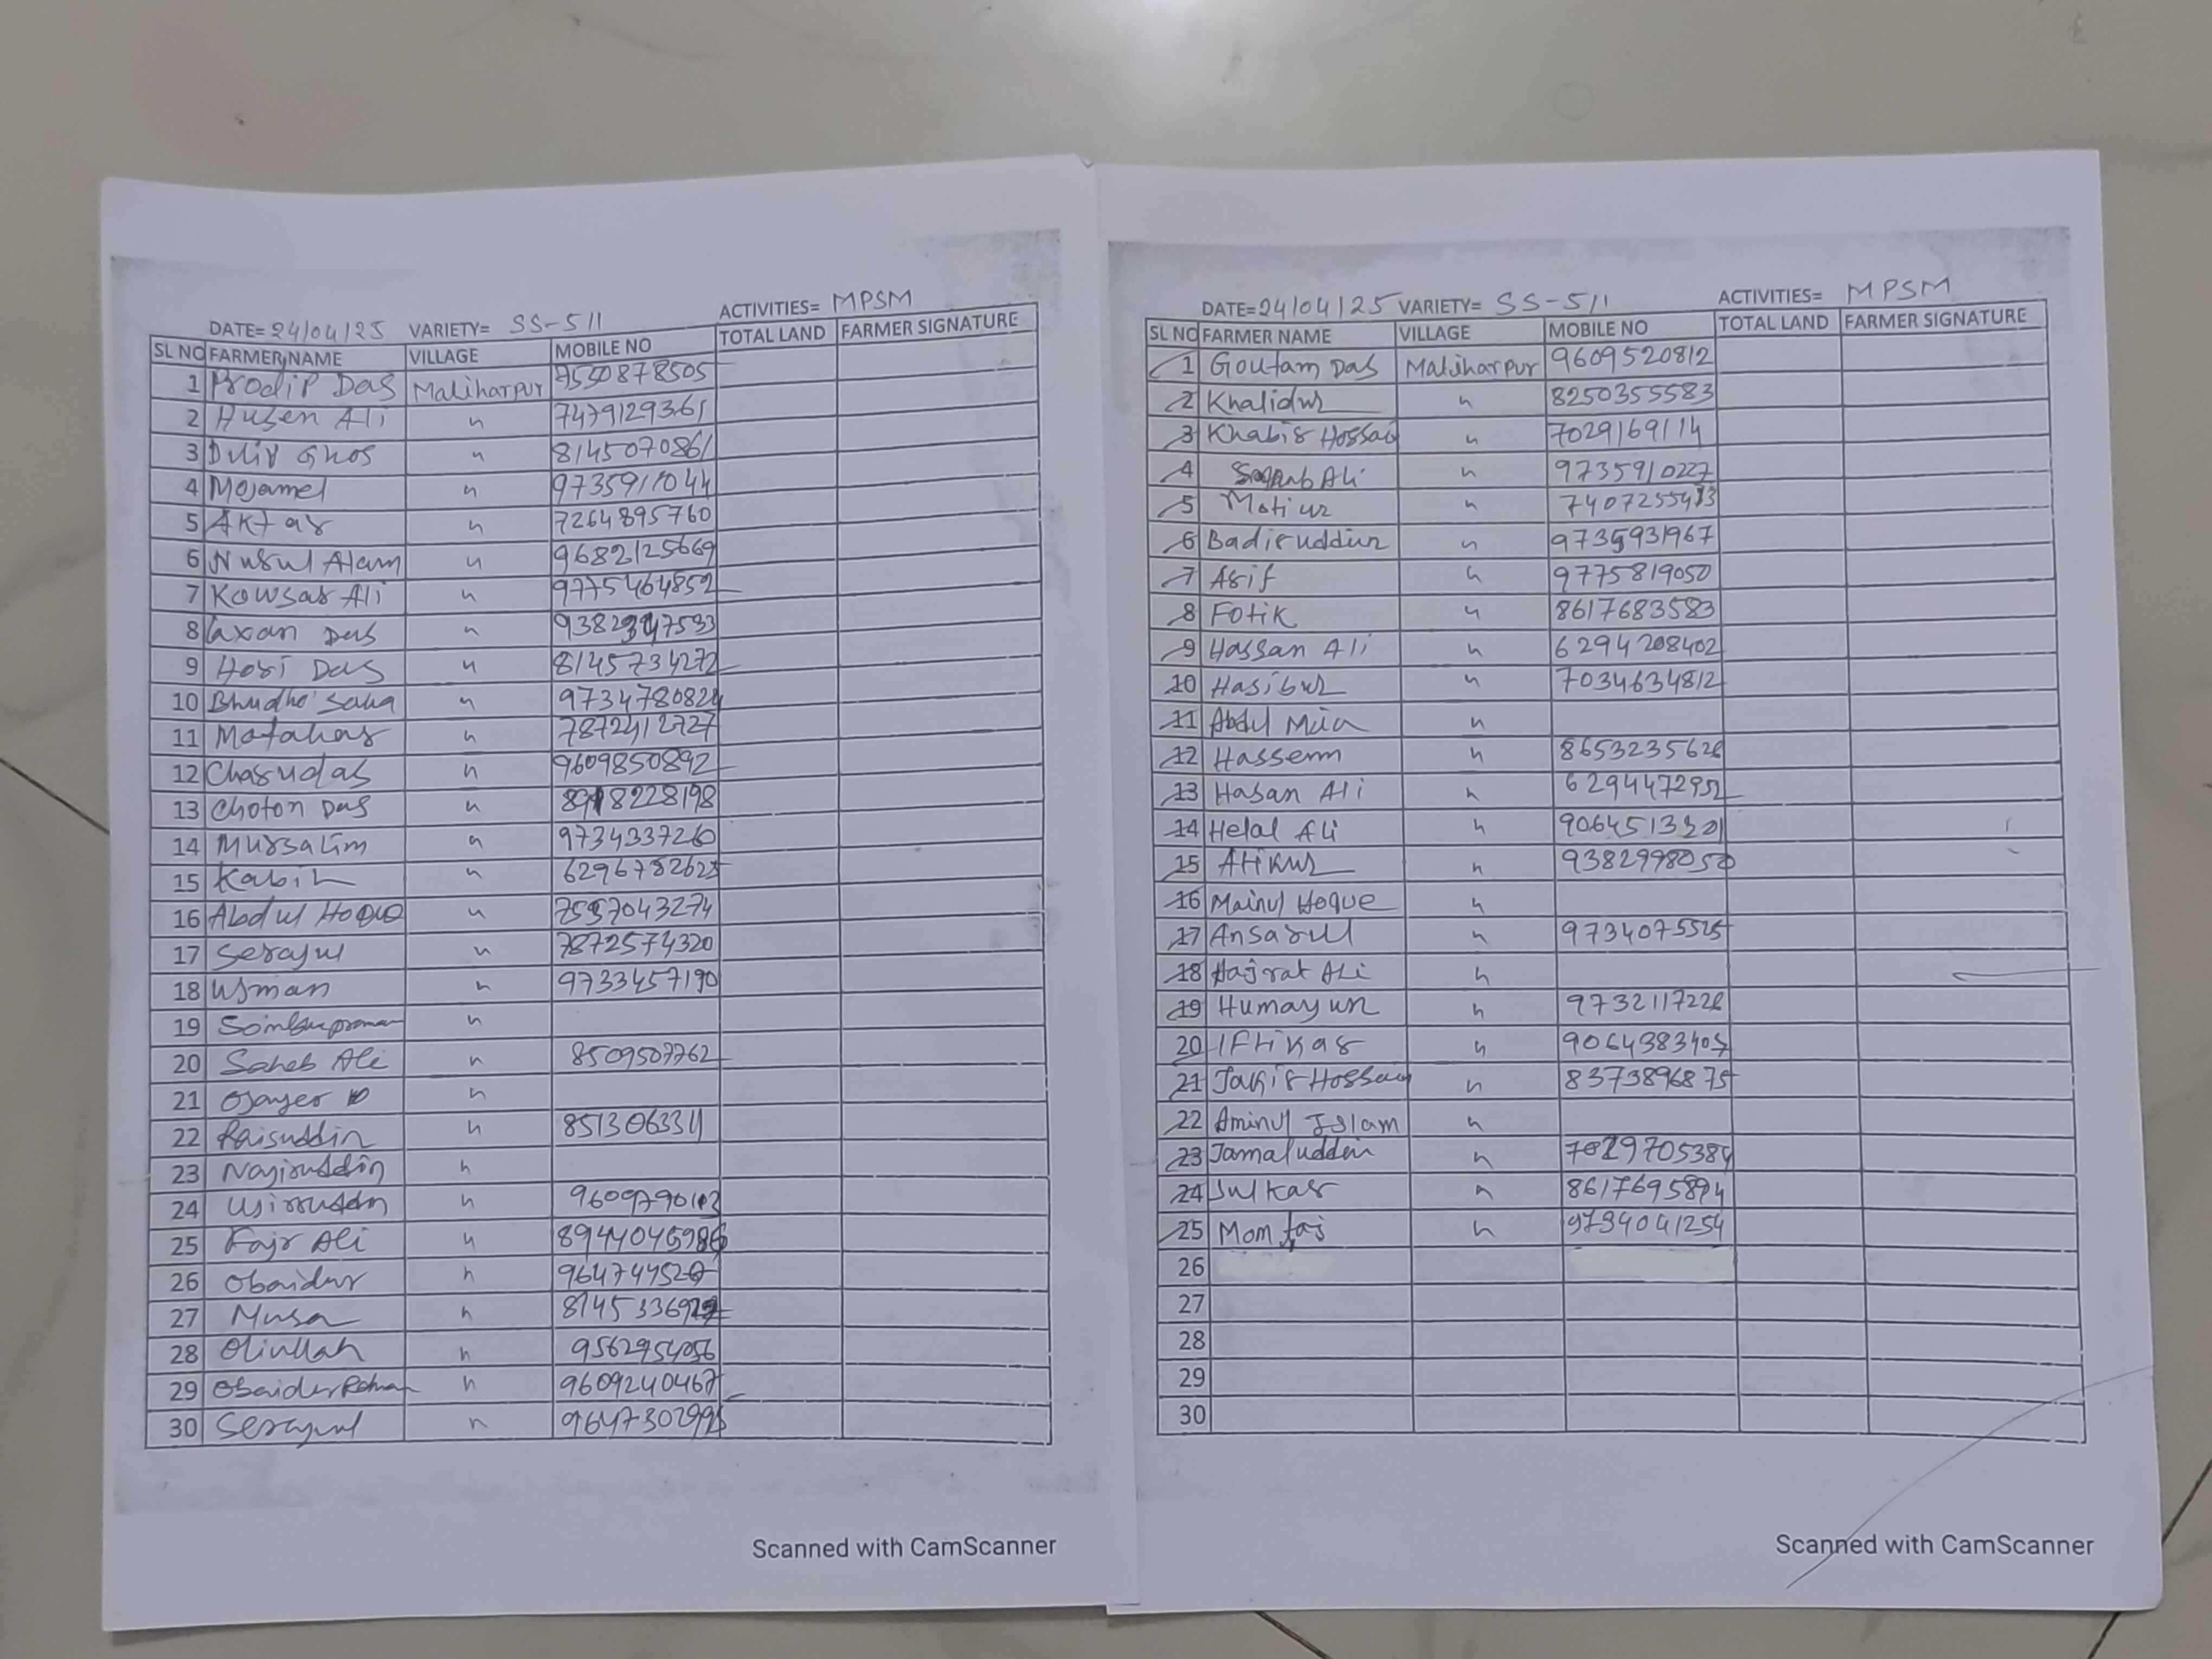 DATE= 24/04/25 VARIETY= SS-511 ACTIVITIES= MPSM
SL NO FARMER NAME VILLAGE MOBILE NO TOTAL LAND FARMER SIGNATURE
1 Prodip Das Maliharpur 7550878505
2 Husen Ali " 7479129361
3 Dilip Ghos " 8145070861
4 Mojamel " 9735911044
5 Aktar " 7264895760
6 Nurul Alam " 9682125669
7 Kowsar Ali " 9775464852
8 Laxan Das "
9 Hori Das " 8145734272
10 Bhudho Saha " 9734780824
11 Motahar " 7872412727
12 Charudas " 9609850892
13 Choton Das " 8918228198
14 Mursalim " 9734337260
15 Kabir " 6296782625
16 Abdul Hoque " 7557043274
17 Serajul " 7872574320
18 Usman " 9733457190
19 "
20 Saheb Ali " 8509507762
21 Ojayer "
22 Raisuddin " 8513063311
23 Najiruddin "
24 Ujiruddin "
25 Fajr Ali "
26 Obaidur "
27 Musa "
28 Oliullah " 9562954056
29 Obaidur Rohman " 9609240467
30 Serajul " 9647302995
Scanned with CamScanner
DATE=24/04/25 VARIETY= SS-511 ACTIVITIES= MPSM
SL NO FARMER NAME VILLAGE MOBILE NO TOTAL LAND FARMER SIGNATURE
1 Goutam Das Maliharpur 9609520812
2 Khalidur " 8250355583
3 Khabir Hossain " 7029169114
4 Ali " 9735910227
5 Motiur "
6 Badiruddin " 9735931967
7 Asif " 9775819050
8 Fotik " 8617683583
9 Hassan Ali " 6294208402
10 Hasibur " 7034634812
11 Abdul Mia "
12 Hassem " 8653235626
13 Hasan Ali " 6294472952
14 Helal Ali " 9064513301
15 Atikur " 9382998050
16 Mainul Hoque "
17 Ansarul " 9734075525
18 Hajrat Ali "
19 Humayun " 9732117226
20 Iftikar " 9064383405
21 Jakir Hossain " 8373896875
22 Aminul Islam "
23 Jamaluddin " 7029705384
24 Julkar " 8617695894
25 Momtaj " 9734041254
26
27
28
29
30
Scanned with CamScanner